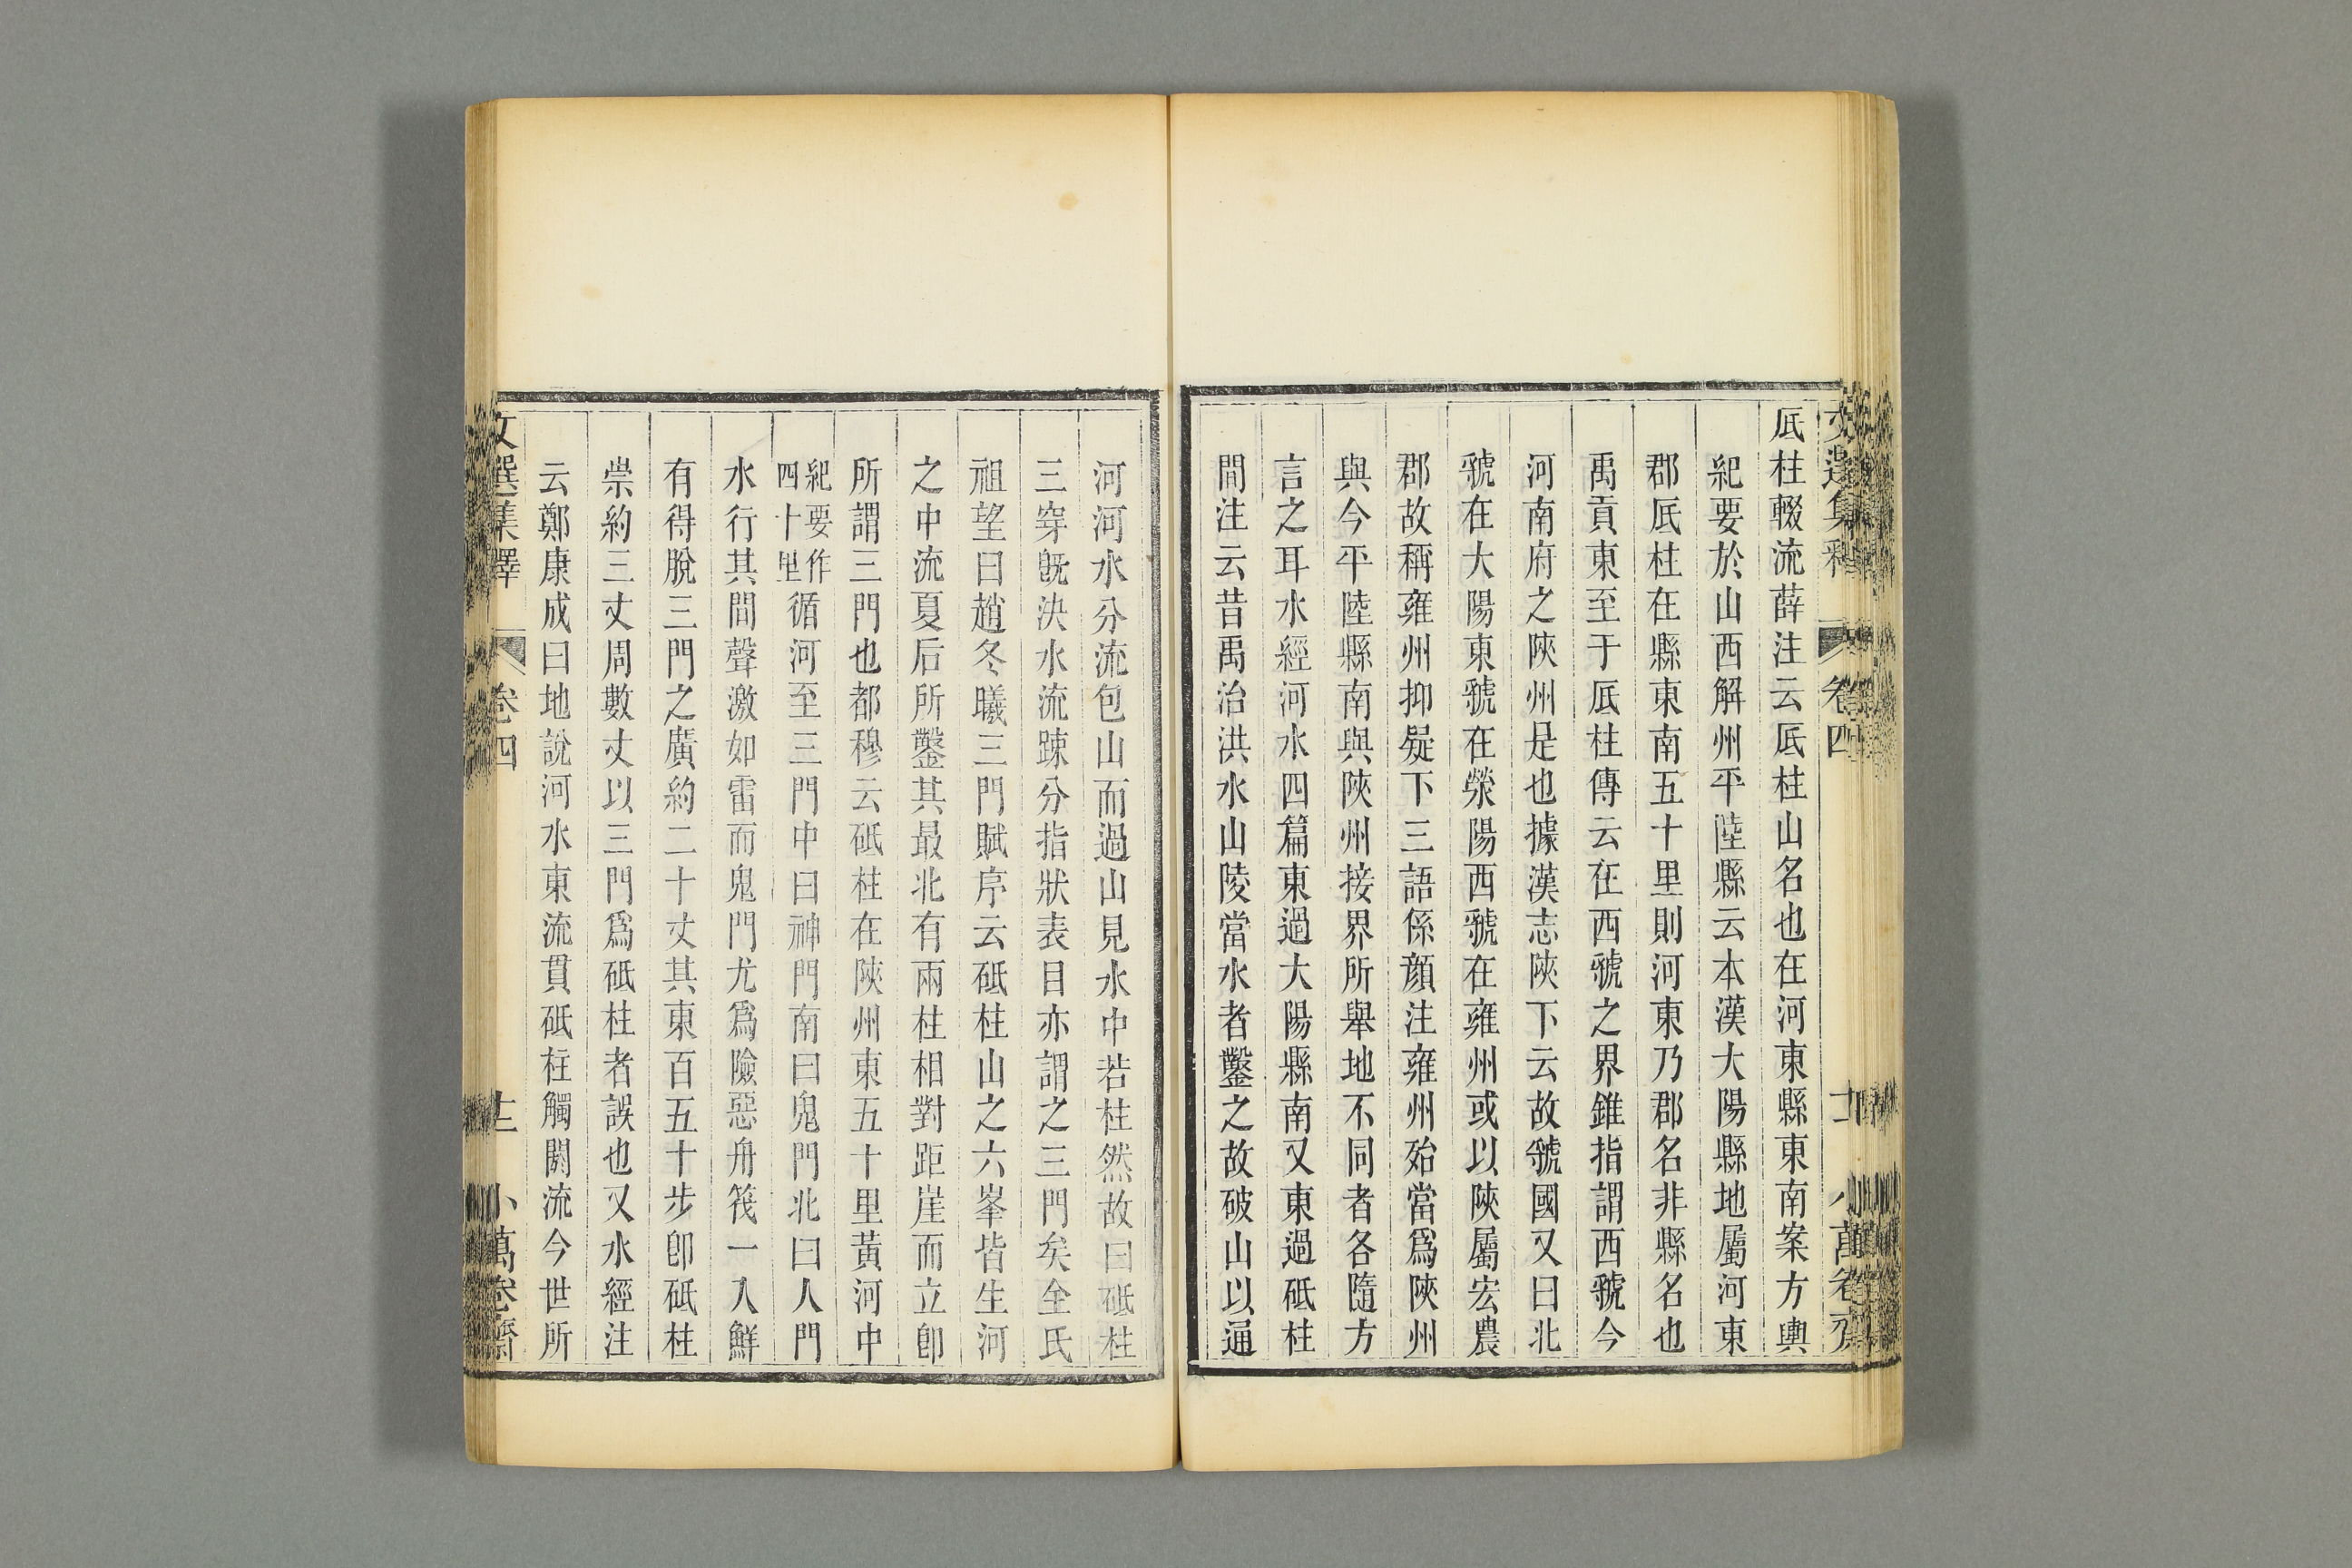 文選集釋 卷四 十二 小萬卷齋
厎柱輟流薛注云厎柱山名也在河東縣東南案方輿
紀要於山西解州平陸縣云本漢大陽縣地屬河東
郡厎柱在縣東南五十里則河東乃郡名非縣名也
禹貢東至于厎柱傳云在西虢之界錐指謂西虢今
河南府之陝州是也據漢志陝下云故虢國又曰北
虢在大陽東虢在滎陽西虢在雍州或以陝屬宏農
郡故稱雍州抑疑下三語係顏注雍州殆當爲陝州
與今平陸縣南與陝州接界所舉地不同者各隨方
言之耳水經河水四篇東過大陽縣南又東過砥柱
間注云昔禹治洪水山陵當水者鑿之故破山以通
河河水分流包山而過山見水中若柱然故曰砥柱
三穿旣決水流疎分指狀表目亦謂之三門矣全氏
祖望曰趙冬曦三門賦序云砥柱山之六峯皆生河
之中流夏后所鑿其最北有兩柱相對距崖而立卽
所謂三門也都穆云砥柱在陝州東五十里黃河中
紀要作四十里循河至三門中曰神門南曰鬼門北曰人門
水行其間聲激如雷而鬼門尤爲險惡舟筏一入鮮
有得脫三門之廣約二十丈其東百五十步卽砥柱
崇約三丈周數丈以三門爲砥柱者誤也又水經注
云鄭康成曰地說河水東流貫砥柱觸閼流今世所
文選集釋 卷四 十三 小萬卷齋